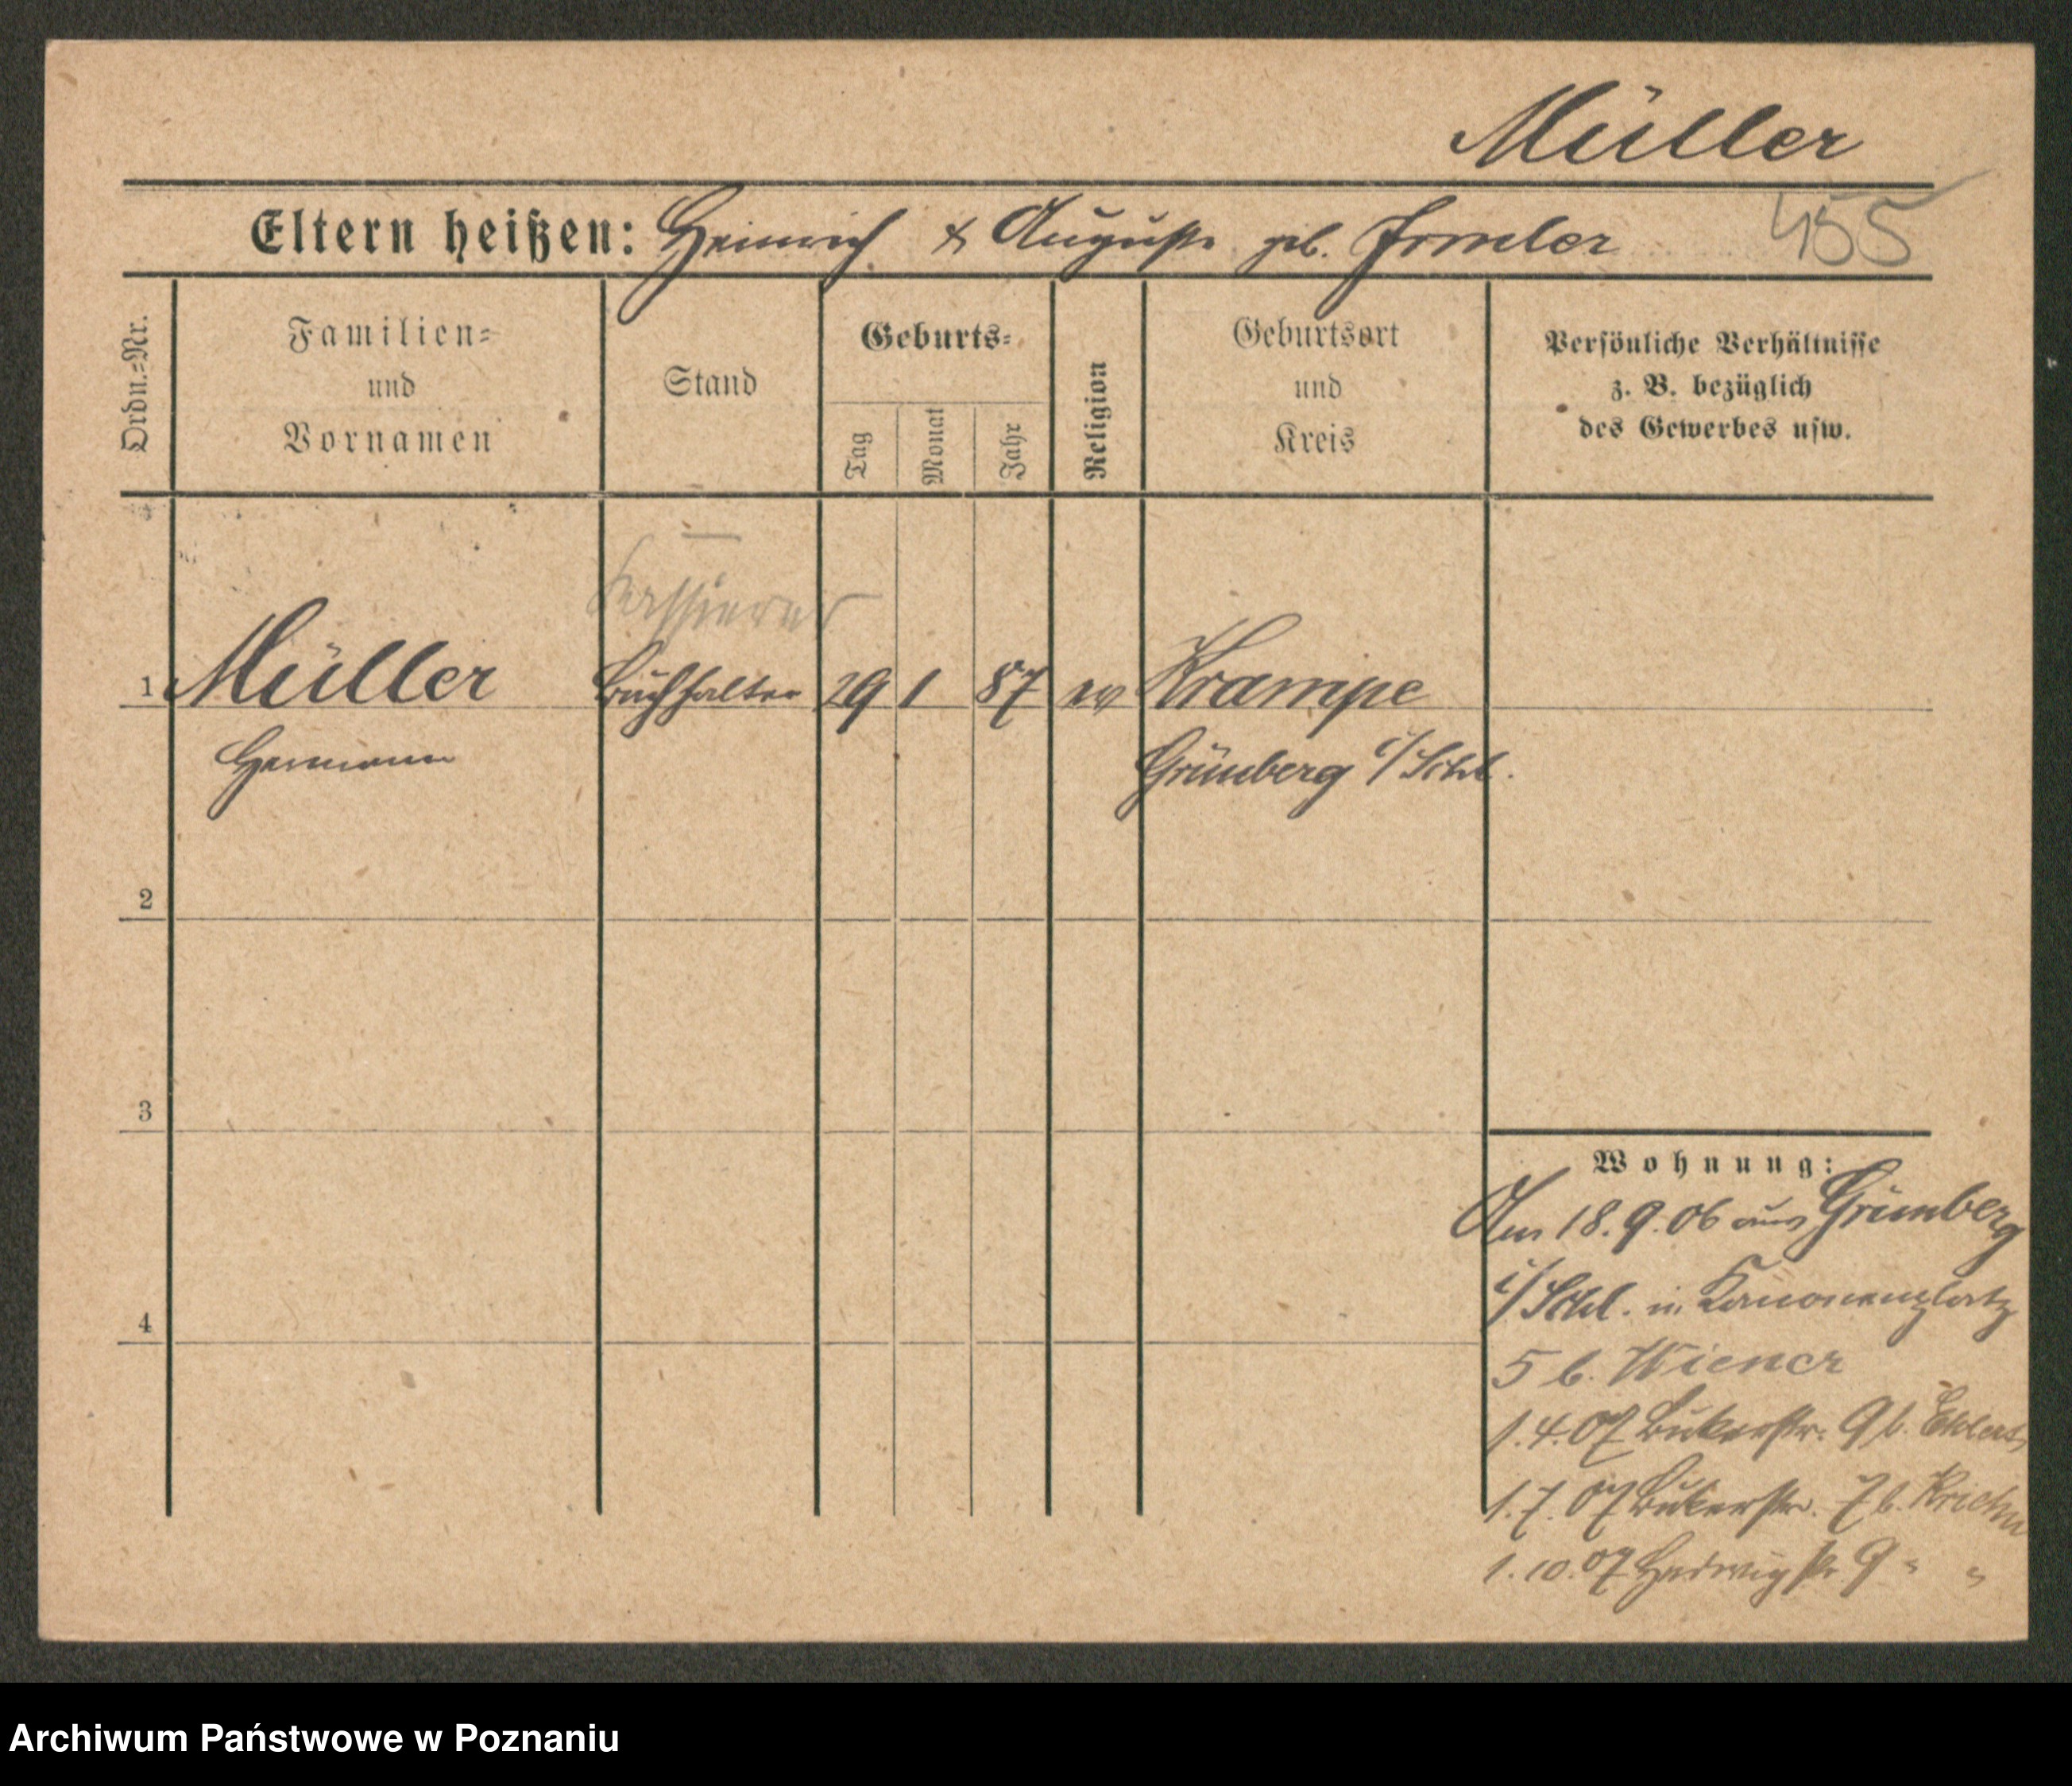 Müller
Eltern heißen: Heinrich & Auguste geb. Irmler
455
Ordn.-Nr.
Familien-
und
Vornamen
Stand
Geburts-
Tag
Monat
Jahr
Religion
Geburtsort
und
Kreis
Persönliche Verhältnisse
z. B. bezüglich
des Gewerbes usw.
Kassierer
1 Müller Buchhalter 29 1 87 ev Krampe
Hermann Grünberg i/Schl.
2
3
4
Wohnung:
Am 18.9.06 aus Grünberg
i/Schl. in Kanonenplatz
5 b. Wiener
1.4.07 Bukerstr. 9 b.
1.7.07 Bukerstr. 7 b.
1.10.07 Hedwigstr. 9 " "
Archiwum Państwowe w Poznaniu